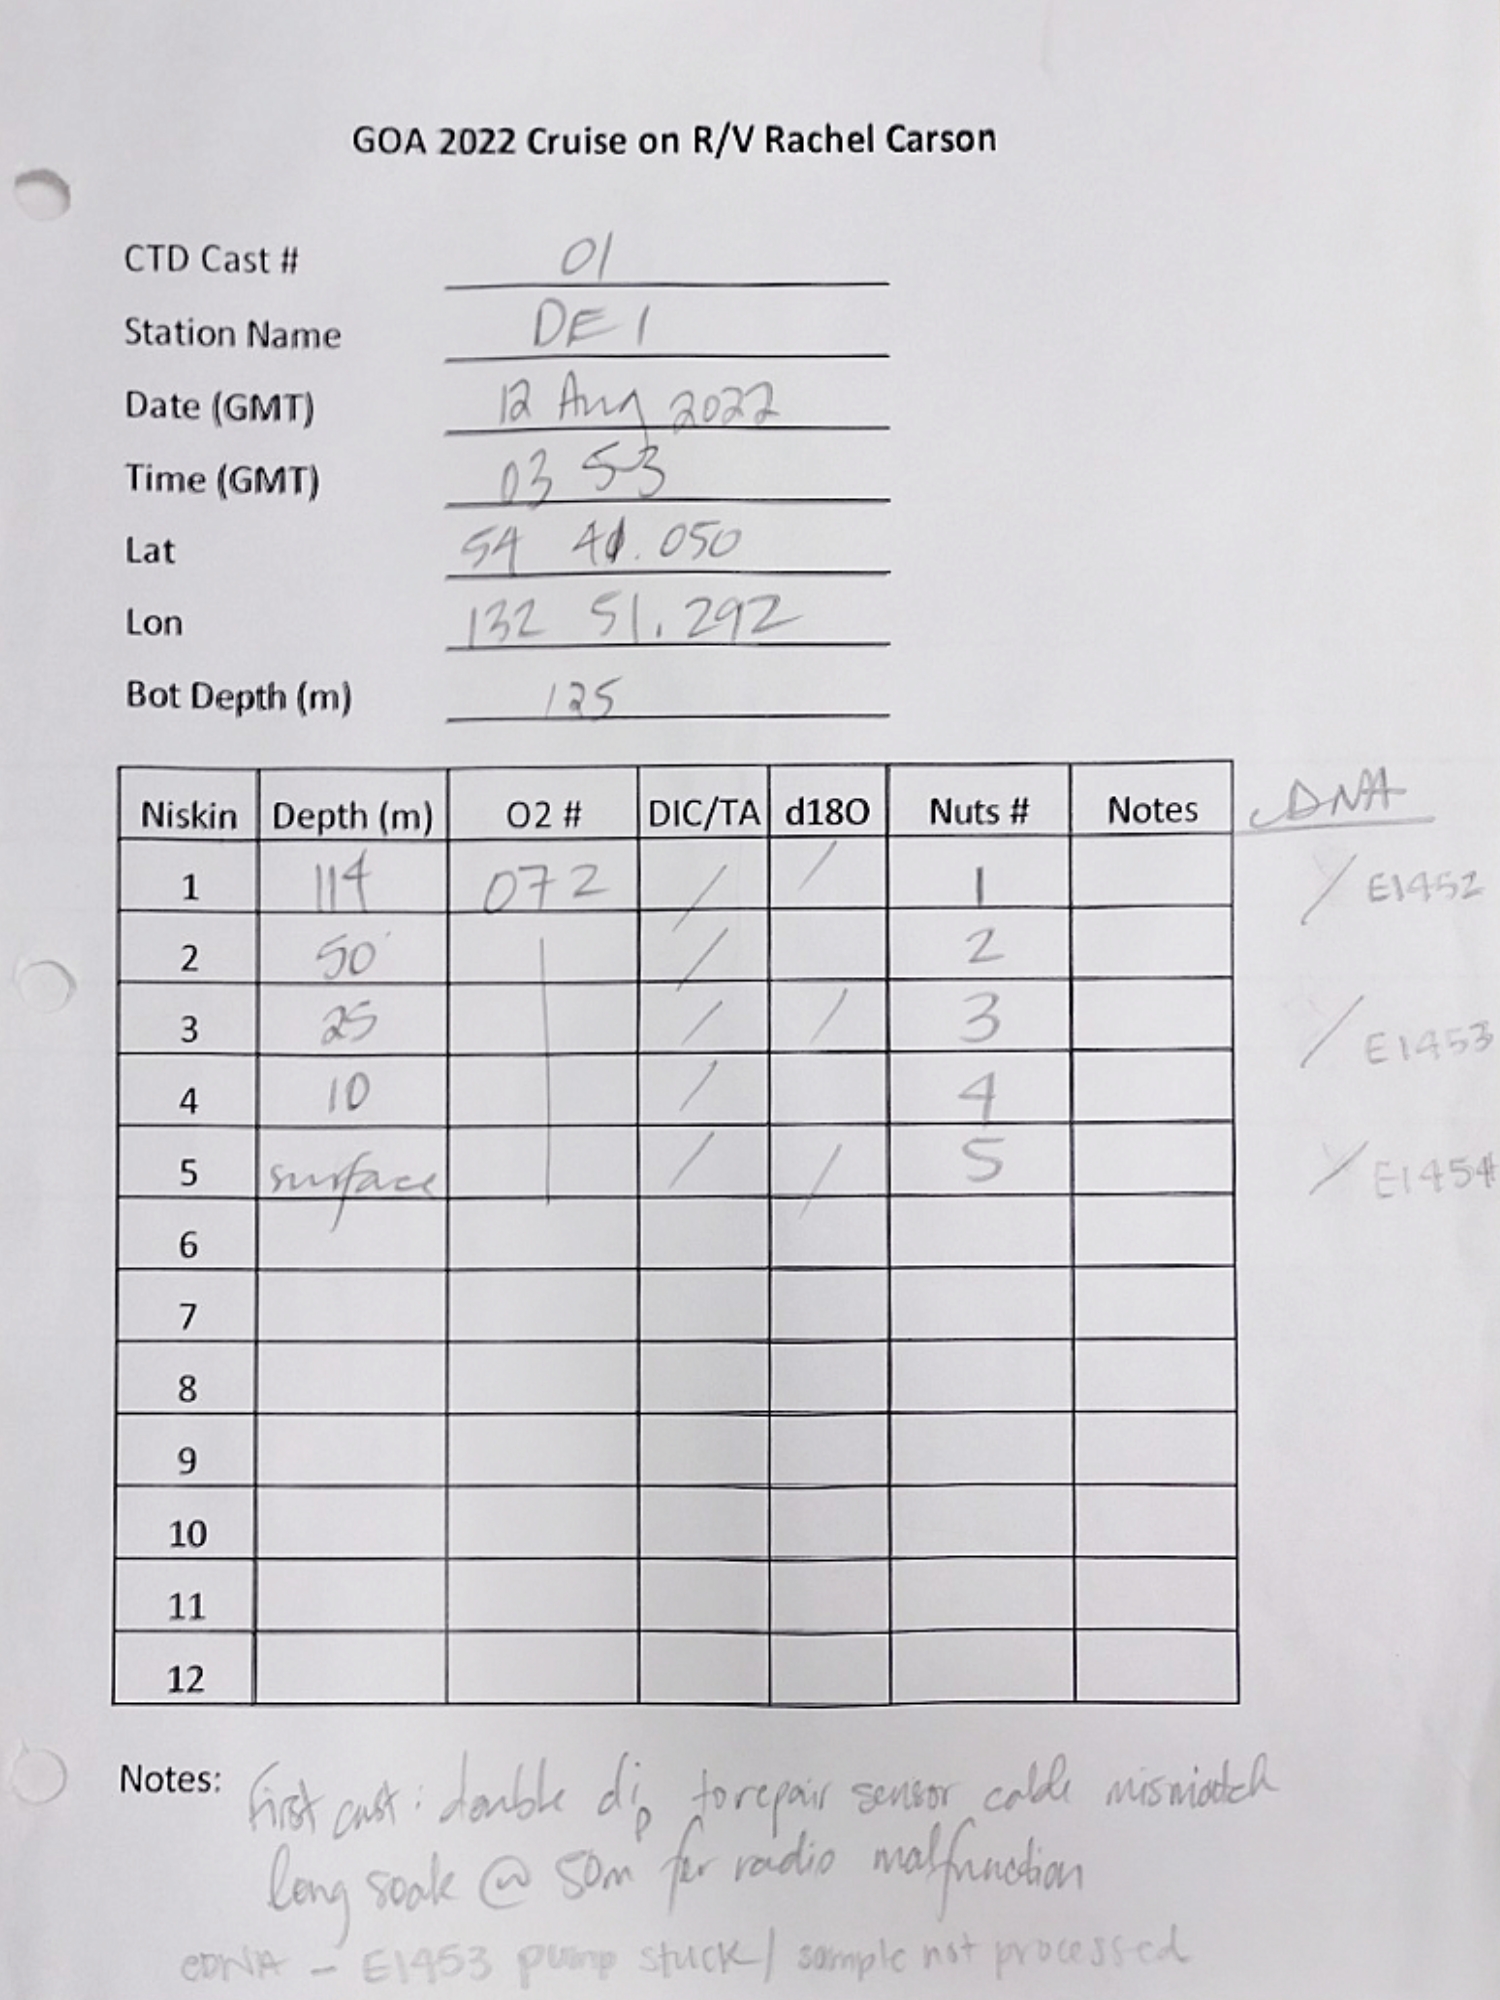 GOA 2022 Cruise on R/V Rachel Carson
CTD Cast # 01
Station Name DE 1
Date (GMT) 12 Aug 2022
Time (GMT) 03 53
Lat 54 41.050
Lon 132 51.292
Bot Depth (m) 125
Niskin Depth (m) O2 # DIC/TA d18O Nuts # Notes eDNA
1 114 072 / / 1 / E1452
2 50 / 2
3 25 / / 3 / E1453
4 10 / 4
5 surface / / 5 / E1454
6
7
8
9
10
11
12
Notes: First cast: double dip to repair sensor cable mismatch
long soak @ 50m for radio malfunction
eDNA - E1453 pump stuck / sample not processed